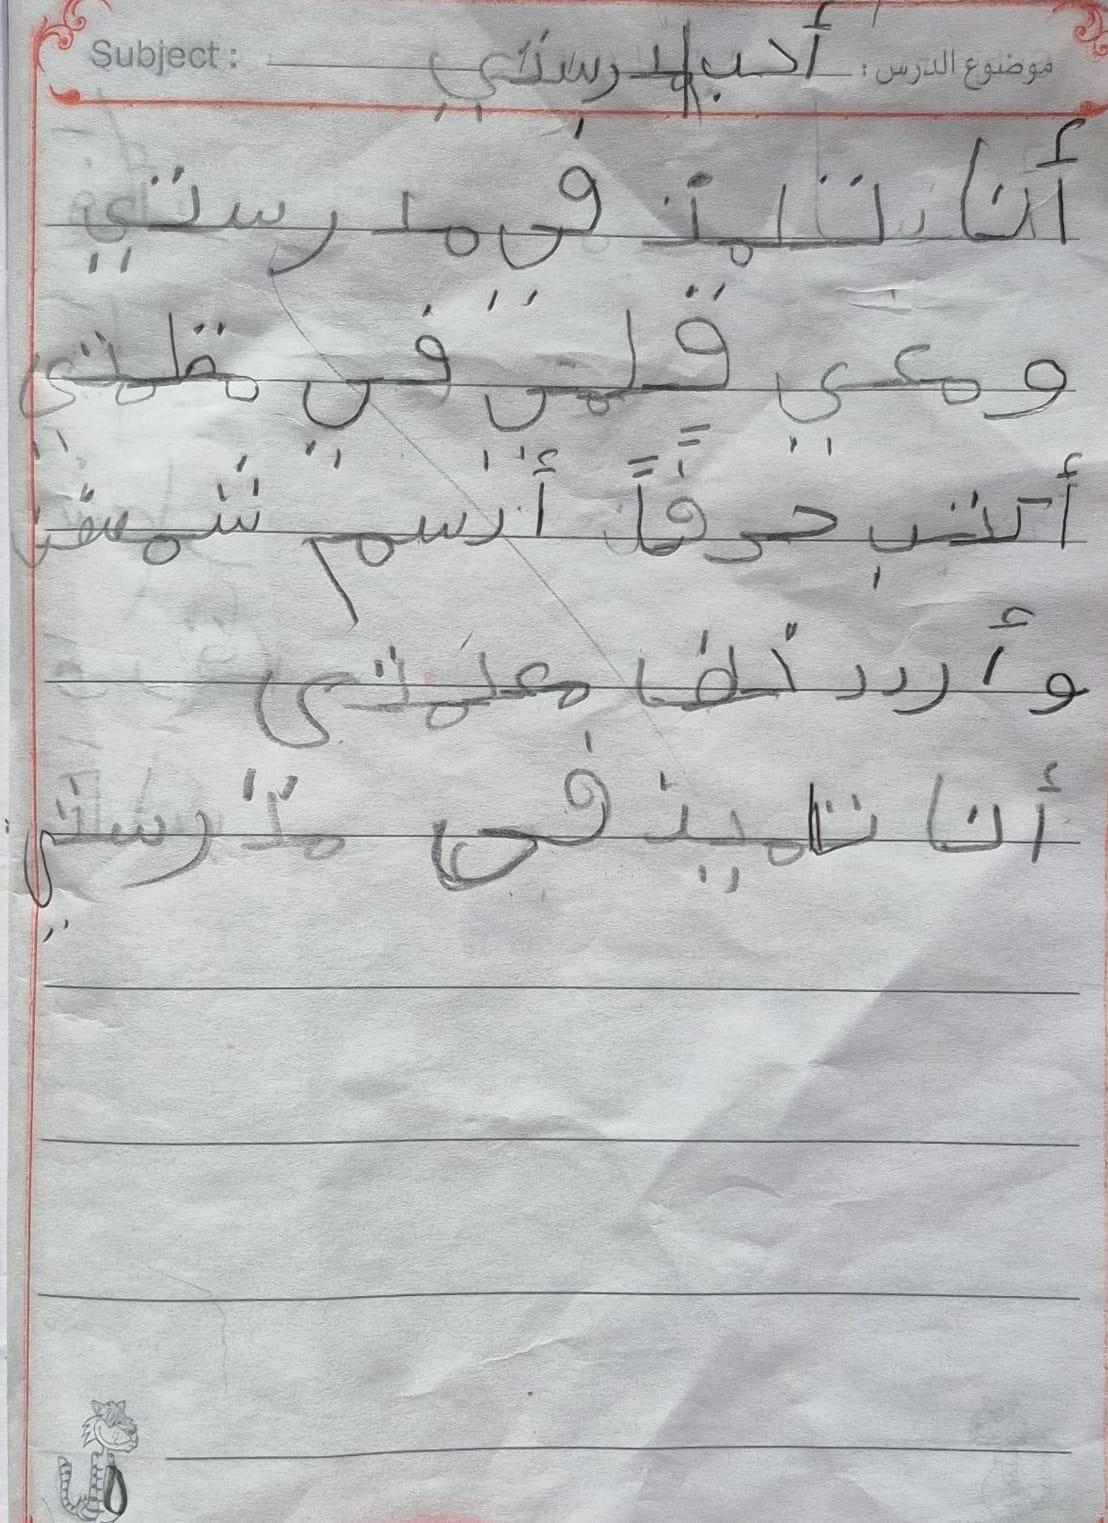 Subject: موضوع الدرس: أحب مدرستي
أنا تلميذ في مدرستي
ومعي قلمي في مقلمتي
أكتب حرفاً أرسم شمسي
وأردد خلف معلمتي
أنا تلميذ في مدرستي